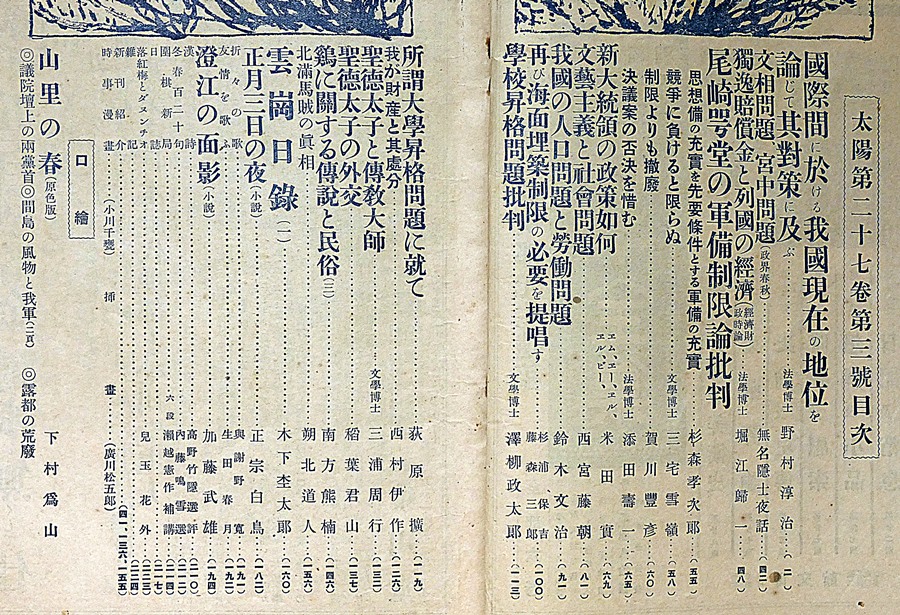 太陽第二十七卷第三號目次
國際間に於ける我國現在の地位を
論じて其對策に及ぶ……法學博士 野村淳治…(二)
文相問題、宮中問題(政界春秋)……無名隱士夜話…(四二)
獨逸賠償金と列國の經濟(經濟財政時論)…法學博士 堀江歸一…(四八)
尾崎咢堂の軍備制限論批判
思想備の充實を先要條件とする軍備の充實……杉森孝次郎…(五五)
競爭に負けると限らぬ……文學博士 三宅雪嶺…(五八)
制限よりも撤廢……賀川豐彦…(六〇)
決議案の否決を惜む……法學博士 添田壽一…(六五)
新大統領の政策如何……エム、エー、エル、エル、ビー、 米田實…(六九)
文藝主義と社會問題……西宮藤朝…(八一)
我國の人口問題と勞働問題……鈴木文治…(九一)
再び海面埋築制限の必要を提唱す……杉浦保吉 藤森三郎…(一〇〇)
學校昇格問題批判……文學博士 澤柳政太郎…(一一三)
所謂大學昇格問題に就て……荻原擴…(一一九)
我が財産と其處分……西村伊作…(一二六)
聖德太子と傳敎大師……文學博士 三浦周行…(一三二)
聖德太子の外交……稻葉君山…(一三七)
鷄に關する傳說と民俗(三)……南方熊楠
北滿馬賊の眞相……朔北道人…(一五六)
雲崗日錄(一)……木下杢太郎…(一六〇)
正月三日の夜(小說)……正宗白鳥…(一八二)
折々の歌……與謝野寬
友情を歌ふ……生田春月
澄江の面影(小說)……加藤武雄…(一九四)
漢詩
冬春百二十句……內藤鳴雪選
圍棋新局……六段 瀨越憲作補講
日誌
落紅梅とダヌンチオ……兒玉花外
雜記
新刊紹介
時事漫畫……(小川千甕) 挿畫……(廣川松五郎)…(四一、一三六、一五五)
口繪
山里の春(原色版)……下村爲山
◎議院壇上の兩黨首◎間島の風物と我軍(二頁) ◎露都の荒廢